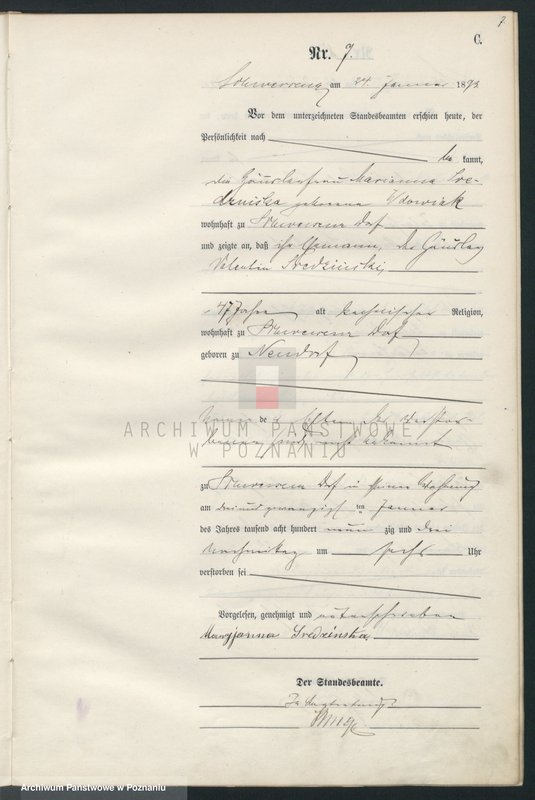 7
C.
Nr. 7.
am 24. Januar 1893
Vor dem unterzeichneten Standesbeamten erschien heute, der
Persönlichkeit nach
kannt,
die Häuslerfrau Marianna Sre-
dzinska geborene Wdowiak
wohnhaft zu Dorf
und zeigte an, daß ihr Ehemann, der Häusler
Valentin Sredzinski,
47 Jahre alt katholischer Religion,
wohnhaft zu Dorf
geboren zu Neudorf
de
ARCHIWUM PAŃSTWOWE
W POZNANIU
nicht bekannt
zu Dorf in seiner Wohnung
am dreiundzwanzigsten Januar
des Jahres tausend acht hundert neun zig und drei
Nachmittag um sechs Uhr
verstorben sei
Vorgelesen, genehmigt und unterschrieben
Maryjanna Sredzinska
Der Standesbeamte.
Archiwum Państwowe w Poznaniu
Archiwum Państwowe w Poznaniu